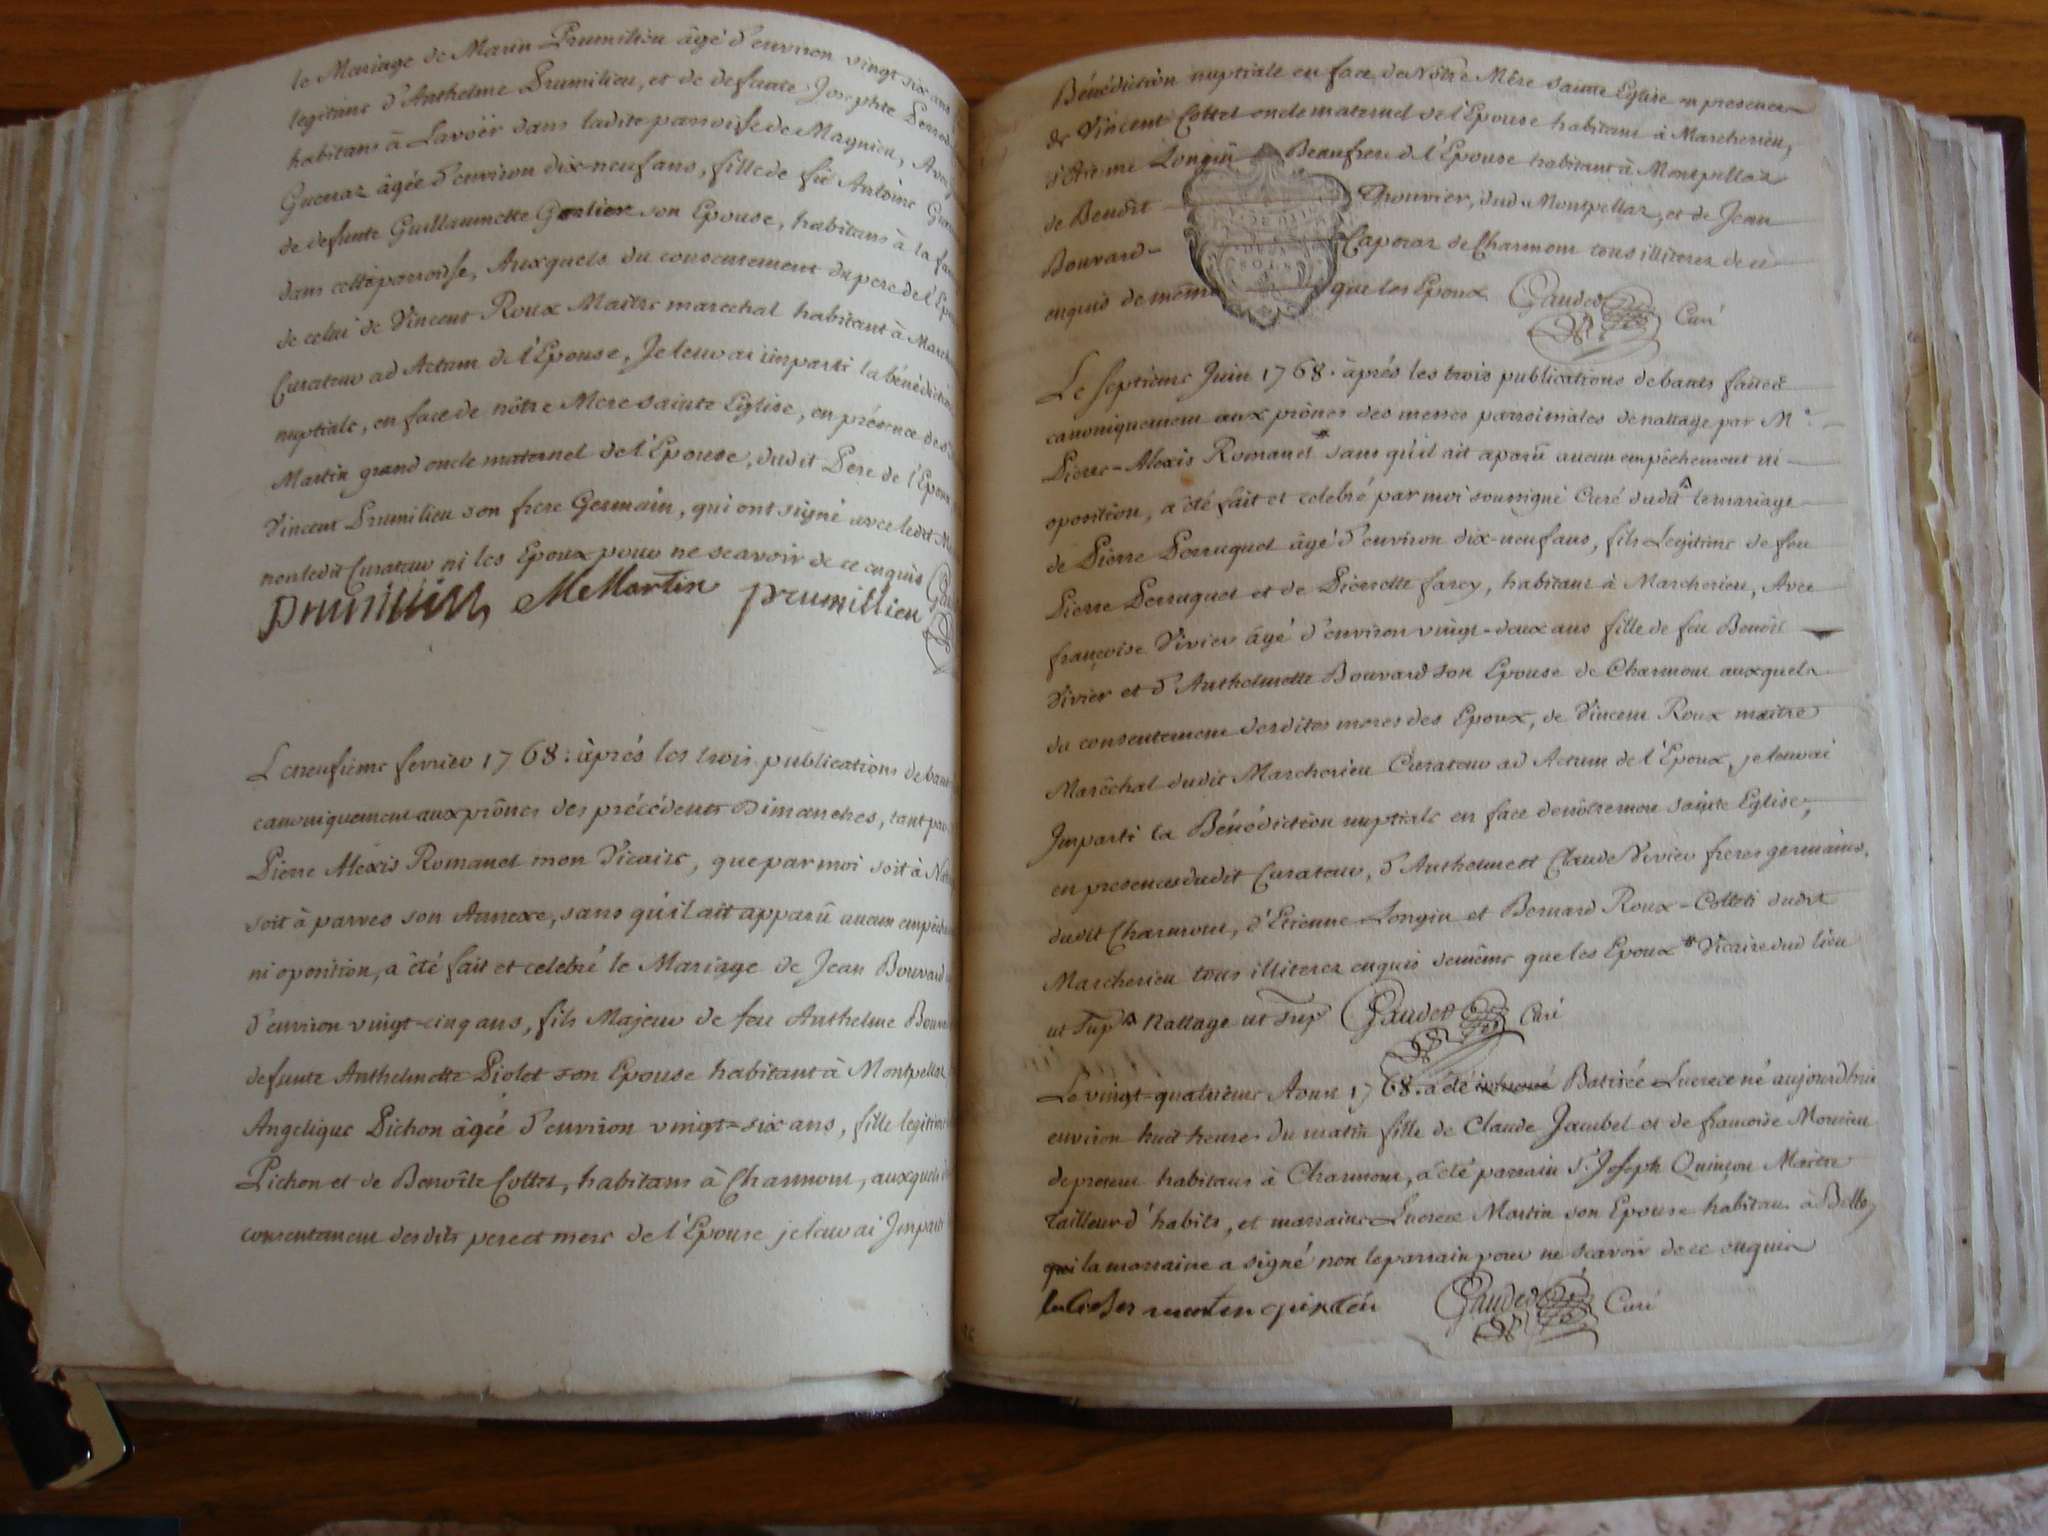 le Mariage de Marin Prumilieu âgé d'environ vingt six ans
legitime d'Anthelme Prumilieu, et de defunte Josephte
habitans à Lavoür dans ladite parroisse de Magnieu, Avec
Guerraz âgée d'environ dix-neuf ans, fille de feu Antoine
de defunte Guillaumette Gerlier son Epouse, habitans à la
dans cette parroisse, Auxquels du consentement du pere de l'Epoux
de celui de Vincent Roux Maitre marechal habitant à
Curateur ad Actum de l'Epouse, Je leur ai imparti la bénédiction
nuptiale, en face de nôtre Mere sainte Eglise, en présence de
Martin grand oncle maternel de l'Epouse, dudit Pere de l'Epoux
Vincent Prumilieu son frere Germain, qui ont signé avec ledit
non ledit Curateur ni les Epoux pour ne scavoir de ce enquis
prumilieu MeMartin prumillieu
Le neufieme fevrier 1768. après les trois publications de bans
canoniquement aux prônes des précédents Dimanches, tant par
Pierre Alexis Romanet mon Vicaire, que par moi soit à
soit à parves son Annexe, sans qu'il ait apparû aucun
ni oposition, a été fait et celebré le Mariage de Jean Bouvard
d'environ vingt-cinq ans, fils Majeur de feu Anthelme
defunte Anthelmette Piolet son Epouse habitant à Montpellaz
Angelique Pichon âgée d'environ vingt-six ans, fille legitime
Pichon et de Benoîte Collet, habitans à Charmont, auxquels
consentement desdits pere et mere de l'Epouse je leur ai Imparti
Bénédiction nuptiale en face de Nôtre Mère Sainte Eglise en presence
de Vincent Collet oncle maternel de l'Epouse habitant à Marcherieu,
d'Etienne Longin Beaufrere de l'Epouse habitant à Montpellaz
de Benoît Thouvier, dud. Montpellaz, et de Jean
Bouvard Caporaz de Charmont tous illiterez de ce
enquis de même que les Epoux Gaudet Curé
Le septieme Juin 1768. après les trois publications de bans faites
canoniquement aux prônes des messes parroissiales de nattage par Mr.
Pierre-Alexis Romanet sans qu'il ait aparû aucun empêchement ni
oposition, a été fait et celebré par moi soussigné Curé dudit le mariage
de Pierre Perruquet âgé d'environ dix-neuf ans, fils Legitime de feu
Pierre Perruquet et de Pierrette farcy, habitans à Marcherieu, Avec
françoise Vivier âgé d'environ vingt-deux ans fille de feu Benoît
Vivier et d'Anthelmette Bouvard son Epouse de Charmont auxquels
du consentement desdites meres des Epoux, de Vincent Roux maitre
Maréchal dudit Marcherieu Curateur ad Actum de l'Epoux, je leur ai
Imparti la Bénédiction nuptiale en face de nôtre mere sainte Eglise,
en presence dudit Curateur, d'Anthelme et Claude Vivier freres germains,
dudit Charmont, d'Etienne Longin et Bernard Roux-Collet dudit
Marcherieu tous illiterez enquis de même que les Epoux * Vicaire dud lieu
ut sup. Nattage ut sup. Gaudet Curé
Le vingt-quatrieme Aoust 1768. a été Batisée Lucrece né aujourd'hui
environ huit heures du matin fille de Claude Jambel et de francoise
de present habitans à Charmont, a été parrain Sr. Joseph Quinson Maitre
tailleur d'habits, et marraine Lucrece Martin son Epouse habitans à Belley
qui la marraine a signé non le parrain pour ne scavoir de ce enquis
Gaudet Curé